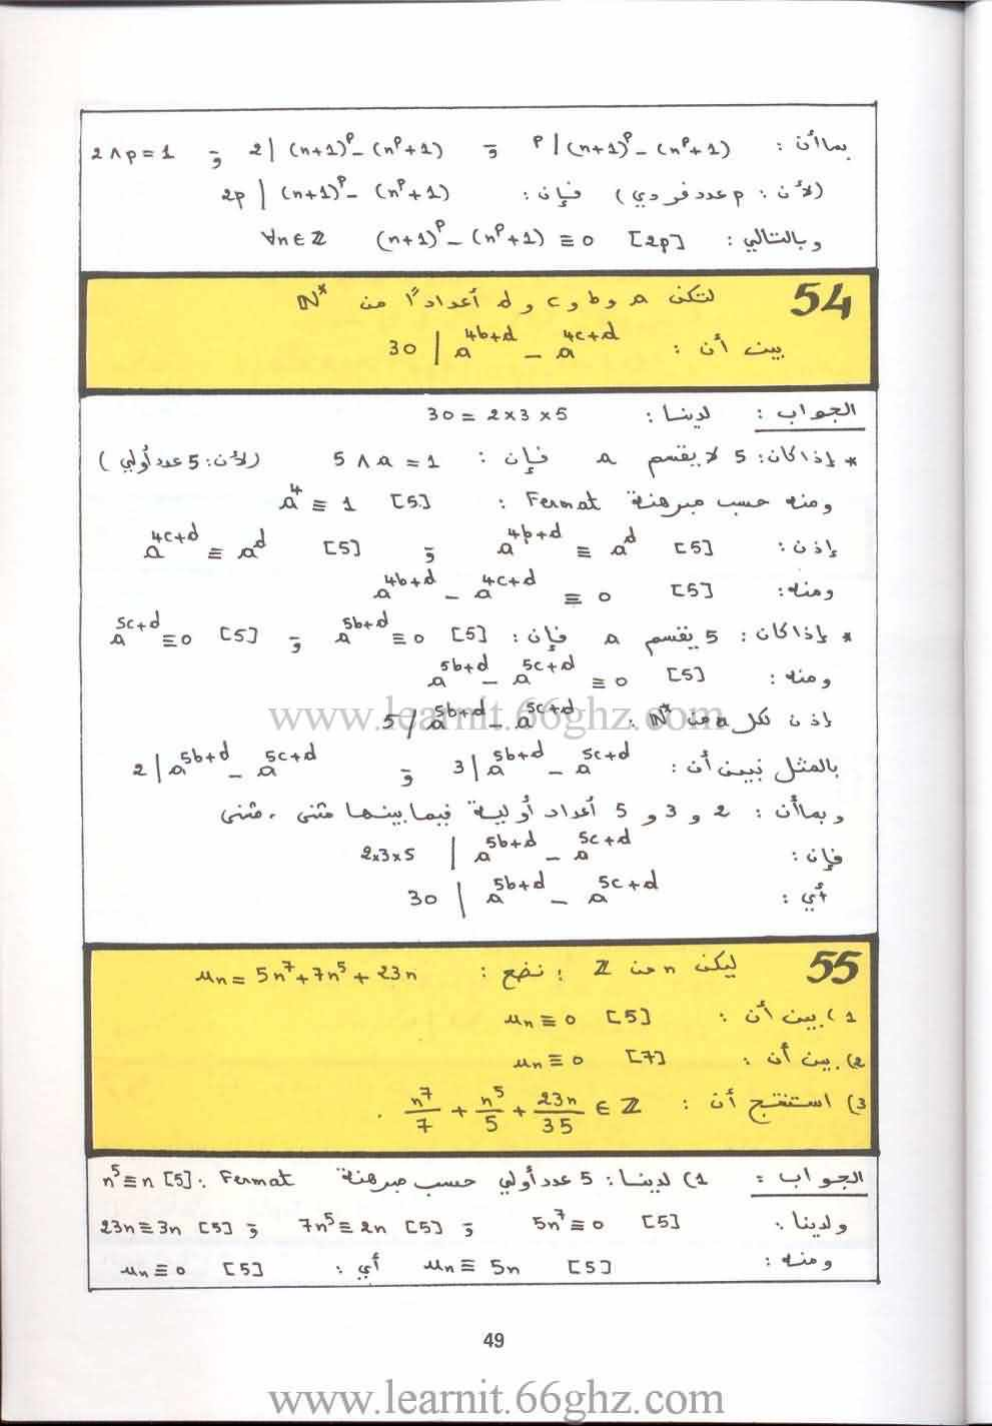 بما أن : p | (n+1)^p - (n^p+1) و 2 | (n+1)^p - (n^p+1) و 2 ∧ p = 1
(لأن : p عدد فردي) فإن : 2p | (n+1)^p - (n^p+1)
وبالتالي : (n+1)^p - (n^p+1) ≡ 0 [2p] ∀n ∈ ℤ
54 لتكن a و b و c و d أعدادًا من ℕ*
بين أن : 30 | a^{4b+d} - a^{4c+d}
الجواب : لدينا : 30 = 2×3×5
* إذا كان : 5 لا يقسم a فإن : 5 ∧ a = 1 (لأن : 5 عدد أولي)
ومنه حسب مبرهنة Fermat : a^4 ≡ 1 [5]
إذن : a^{4b+d} ≡ a^d [5] و a^{4c+d} ≡ a^d [5]
ومنه : a^{4b+d} - a^{4c+d} ≡ 0 [5]
* إذا كان : 5 يقسم a فإن : a^{5b+d} ≡ 0 [5] و a^{5c+d} ≡ 0 [5]
ومنه : a^{5b+d} - a^{5c+d} ≡ 0 [5]
إذن لكل a من ℕ* : 5 / a^{5b+d} - a^{5c+d}
www.learnit.66ghz.com
بالمثل نبين أن : 3 | a^{5b+d} - a^{5c+d} و 2 | a^{5b+d} - a^{5c+d}
وبما أن : 2 و 3 و 5 أعداد أولية فيما بينها مثنى ، مثنى
فإن : 2×3×5 | a^{5b+d} - a^{5c+d}
أي : 30 | a^{5b+d} - a^{5c+d}
55 ليكن n من ℤ ؛ نضع : u_n = 5n^7 + 7n^5 + 23n
1) بين أن : u_n ≡ 0 [5]
2) بين أن : u_n ≡ 0 [7]
3) استنتج أن : n^7/7 + n^5/5 + 23n/35 ∈ ℤ .
الجواب : 1) لدينا : 5 عدد أولي حسب مبرهنة Fermat : n^5 ≡ n [5]
ولدينا : 5n^7 ≡ 0 [5] و 7n^5 ≡ 2n [5] و 23n ≡ 3n [5]
ومنه : u_n ≡ 5n [5] أي : u_n ≡ 0 [5]
49
www.learnit.66ghz.com